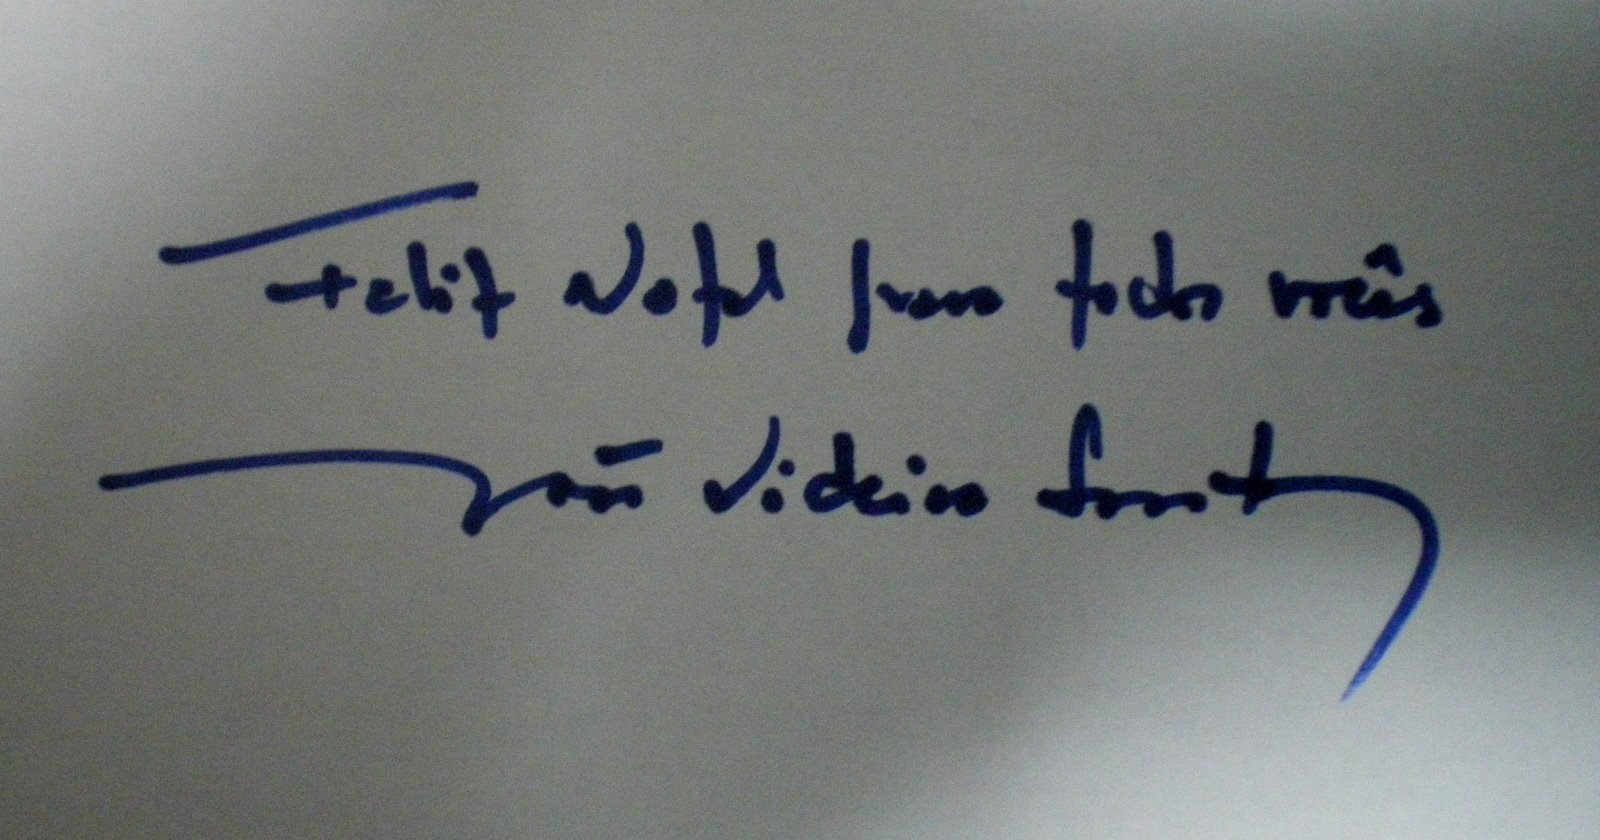 Feliz Natal para todos vocês
João Videira Santos